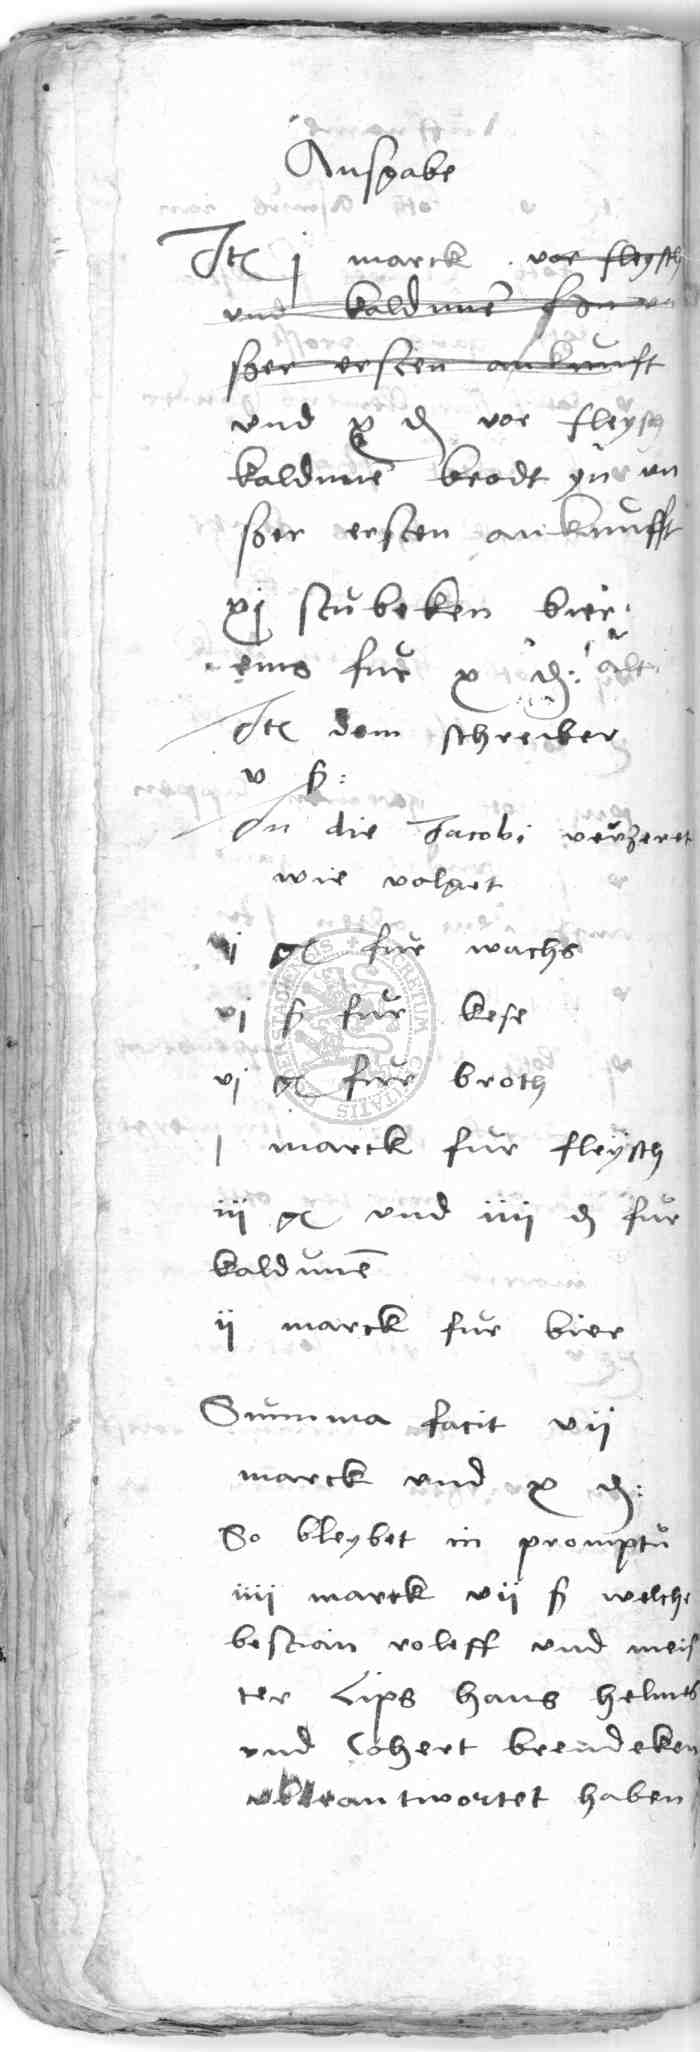 Ausgabe
Ite j marck vor fleysch
und kaldunē
sser ersten ankunft
und x d vor fleysch
kaldunē brodt yn un
sser ersten ankunfft
xj stubeken bier
eins fur x d: alt
Ite dem schreiber
v ß:
In die Jacobi verzeret
wie volget
fur wachs
vj ß fur kese
vj gl fur broth
j marck fur fleysch
iij gl und iiij d fur
kaldunē
ij marck fur bier
Summa facit vij
marck und x d:
So bleybet in promptu
iiij marck vij ß welche
bestian roleff und meis
ter Lips hans helmes
und Cohert brendeken
haben